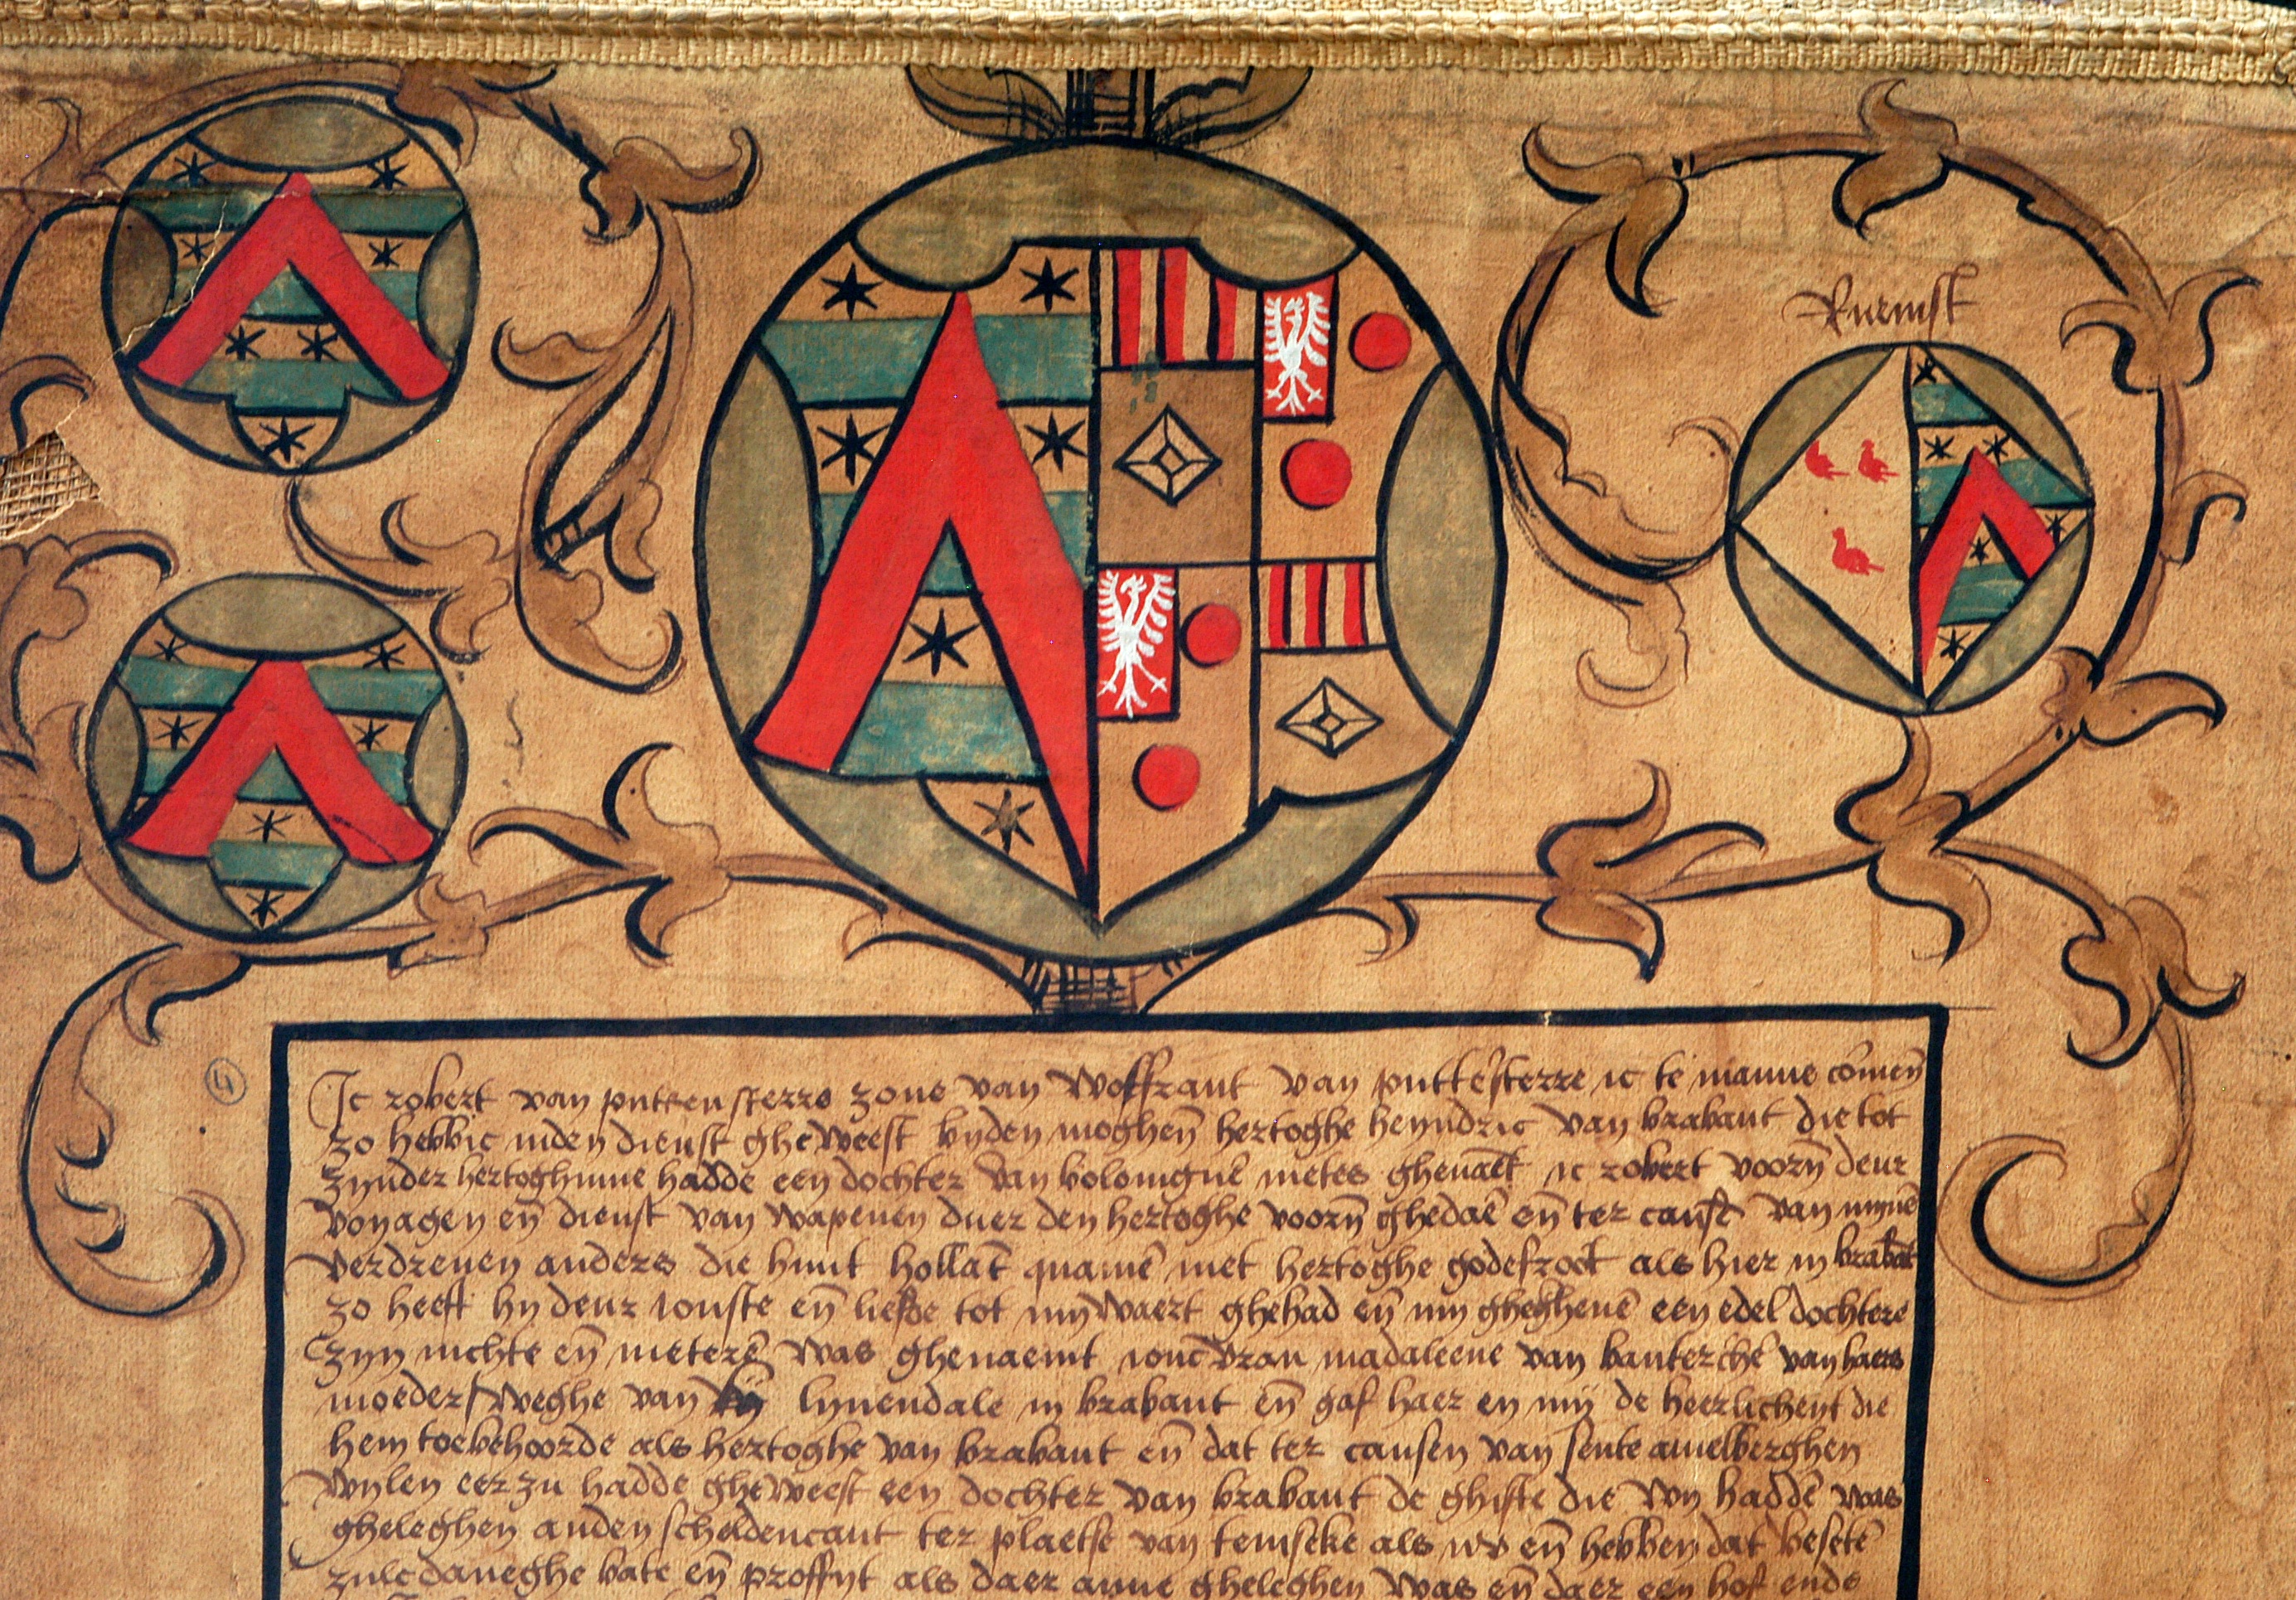 Rumst
4
Ic robert van puttensterre zone van Woffraut van putteſterre ic te manne comē
zo hebbic inden dienst gheweest byden moghēn hertoghe heyndric van brabant die tot
zynder hertoghinne hadde een dochter van bolonignē metes ghenaēt ic robert voorn̄ deur
voyagen en̄ dienst van wapenen duer den hertoghe voorn̄ ghedaē en̄ ter cause van mynē
verdreven anders die hunt hollāt quamē met hertoghe godefroot als hier in brabāt
zo heeft hy deur ionste en̄ liefde tot mywaert ghehad en̄ my ghegheuē een edel dochtere
zyn nichte en̄ meterē was ghenaemt ioncvrau madaleene van banterchē van haers
moeder weghe van lynendale in brabant en̄ gaf haer en my de heerlicheyt die
hem toebehoorde als hertoghe van brabant en̄ dat ter causen van sente amelberghen
wylen eer zu hadde gheweest een dochter van brabant de ghifte die wy haddē was
gheleghen anden scheldencant ter plaetse van temseke als nv en̄ hebben dat besetē
zulcdaneghe bate en̄ proffyt als daer anne gheleghen was en̄ daer een hof ende